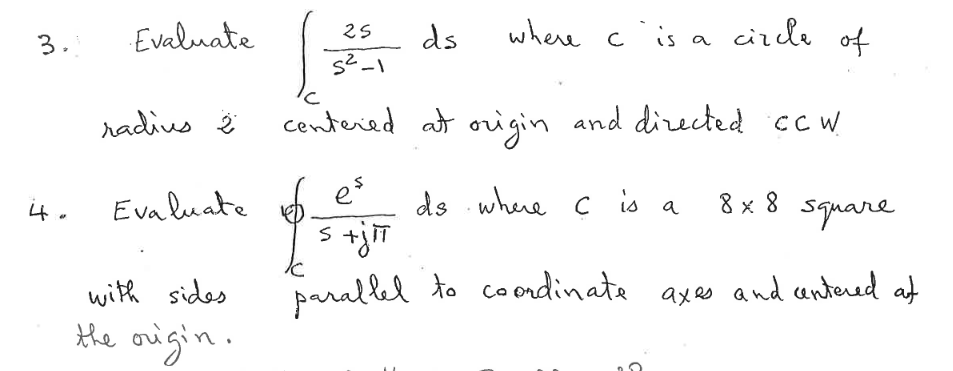 3. Evaluate ∫_C 2s/(s²-1) ds where c is a circle of
radius 2 centered at origin and directed CCW
4. Evaluate ∮_C e^s/(s+jπ) ds where C is a 8×8 square
with sides parallel to coordinate axes and centered at
the origin.